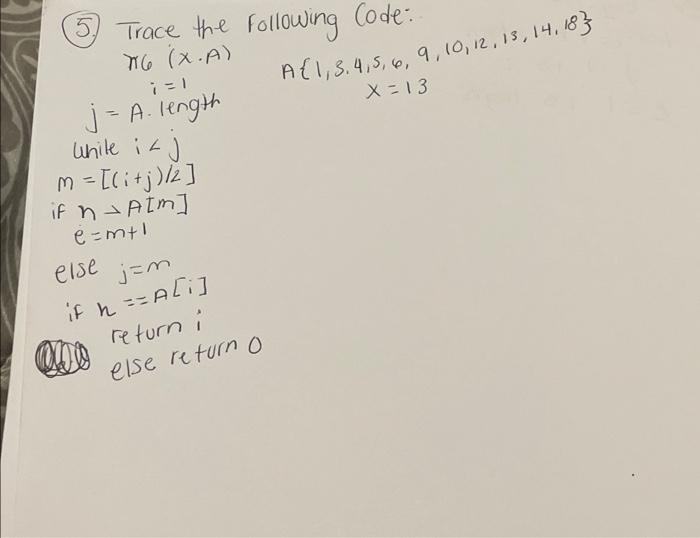 5. Trace the Following Code:
π6 (x.A)
A{1,3.4,5,6, 9,10,12,13,14.18}
i=1
x=13
j = A. length
while i < j
m = [(i+j)/2]
if n > A[m]
e=m+1
else j=m
if n == A[i]
return i
else return 0